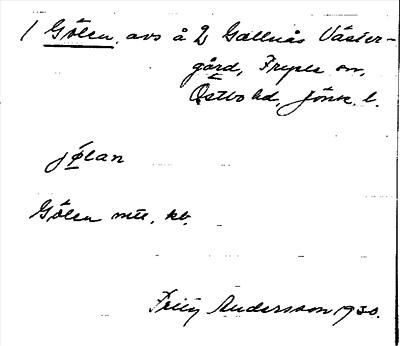 1 Gölen, avs å 2 Gallnås Väster-
gård, Fryele sn,
Östbo hd, Jönk. l.
jölan
Gölen mtl. kb.
Fritz Andersson 1930.